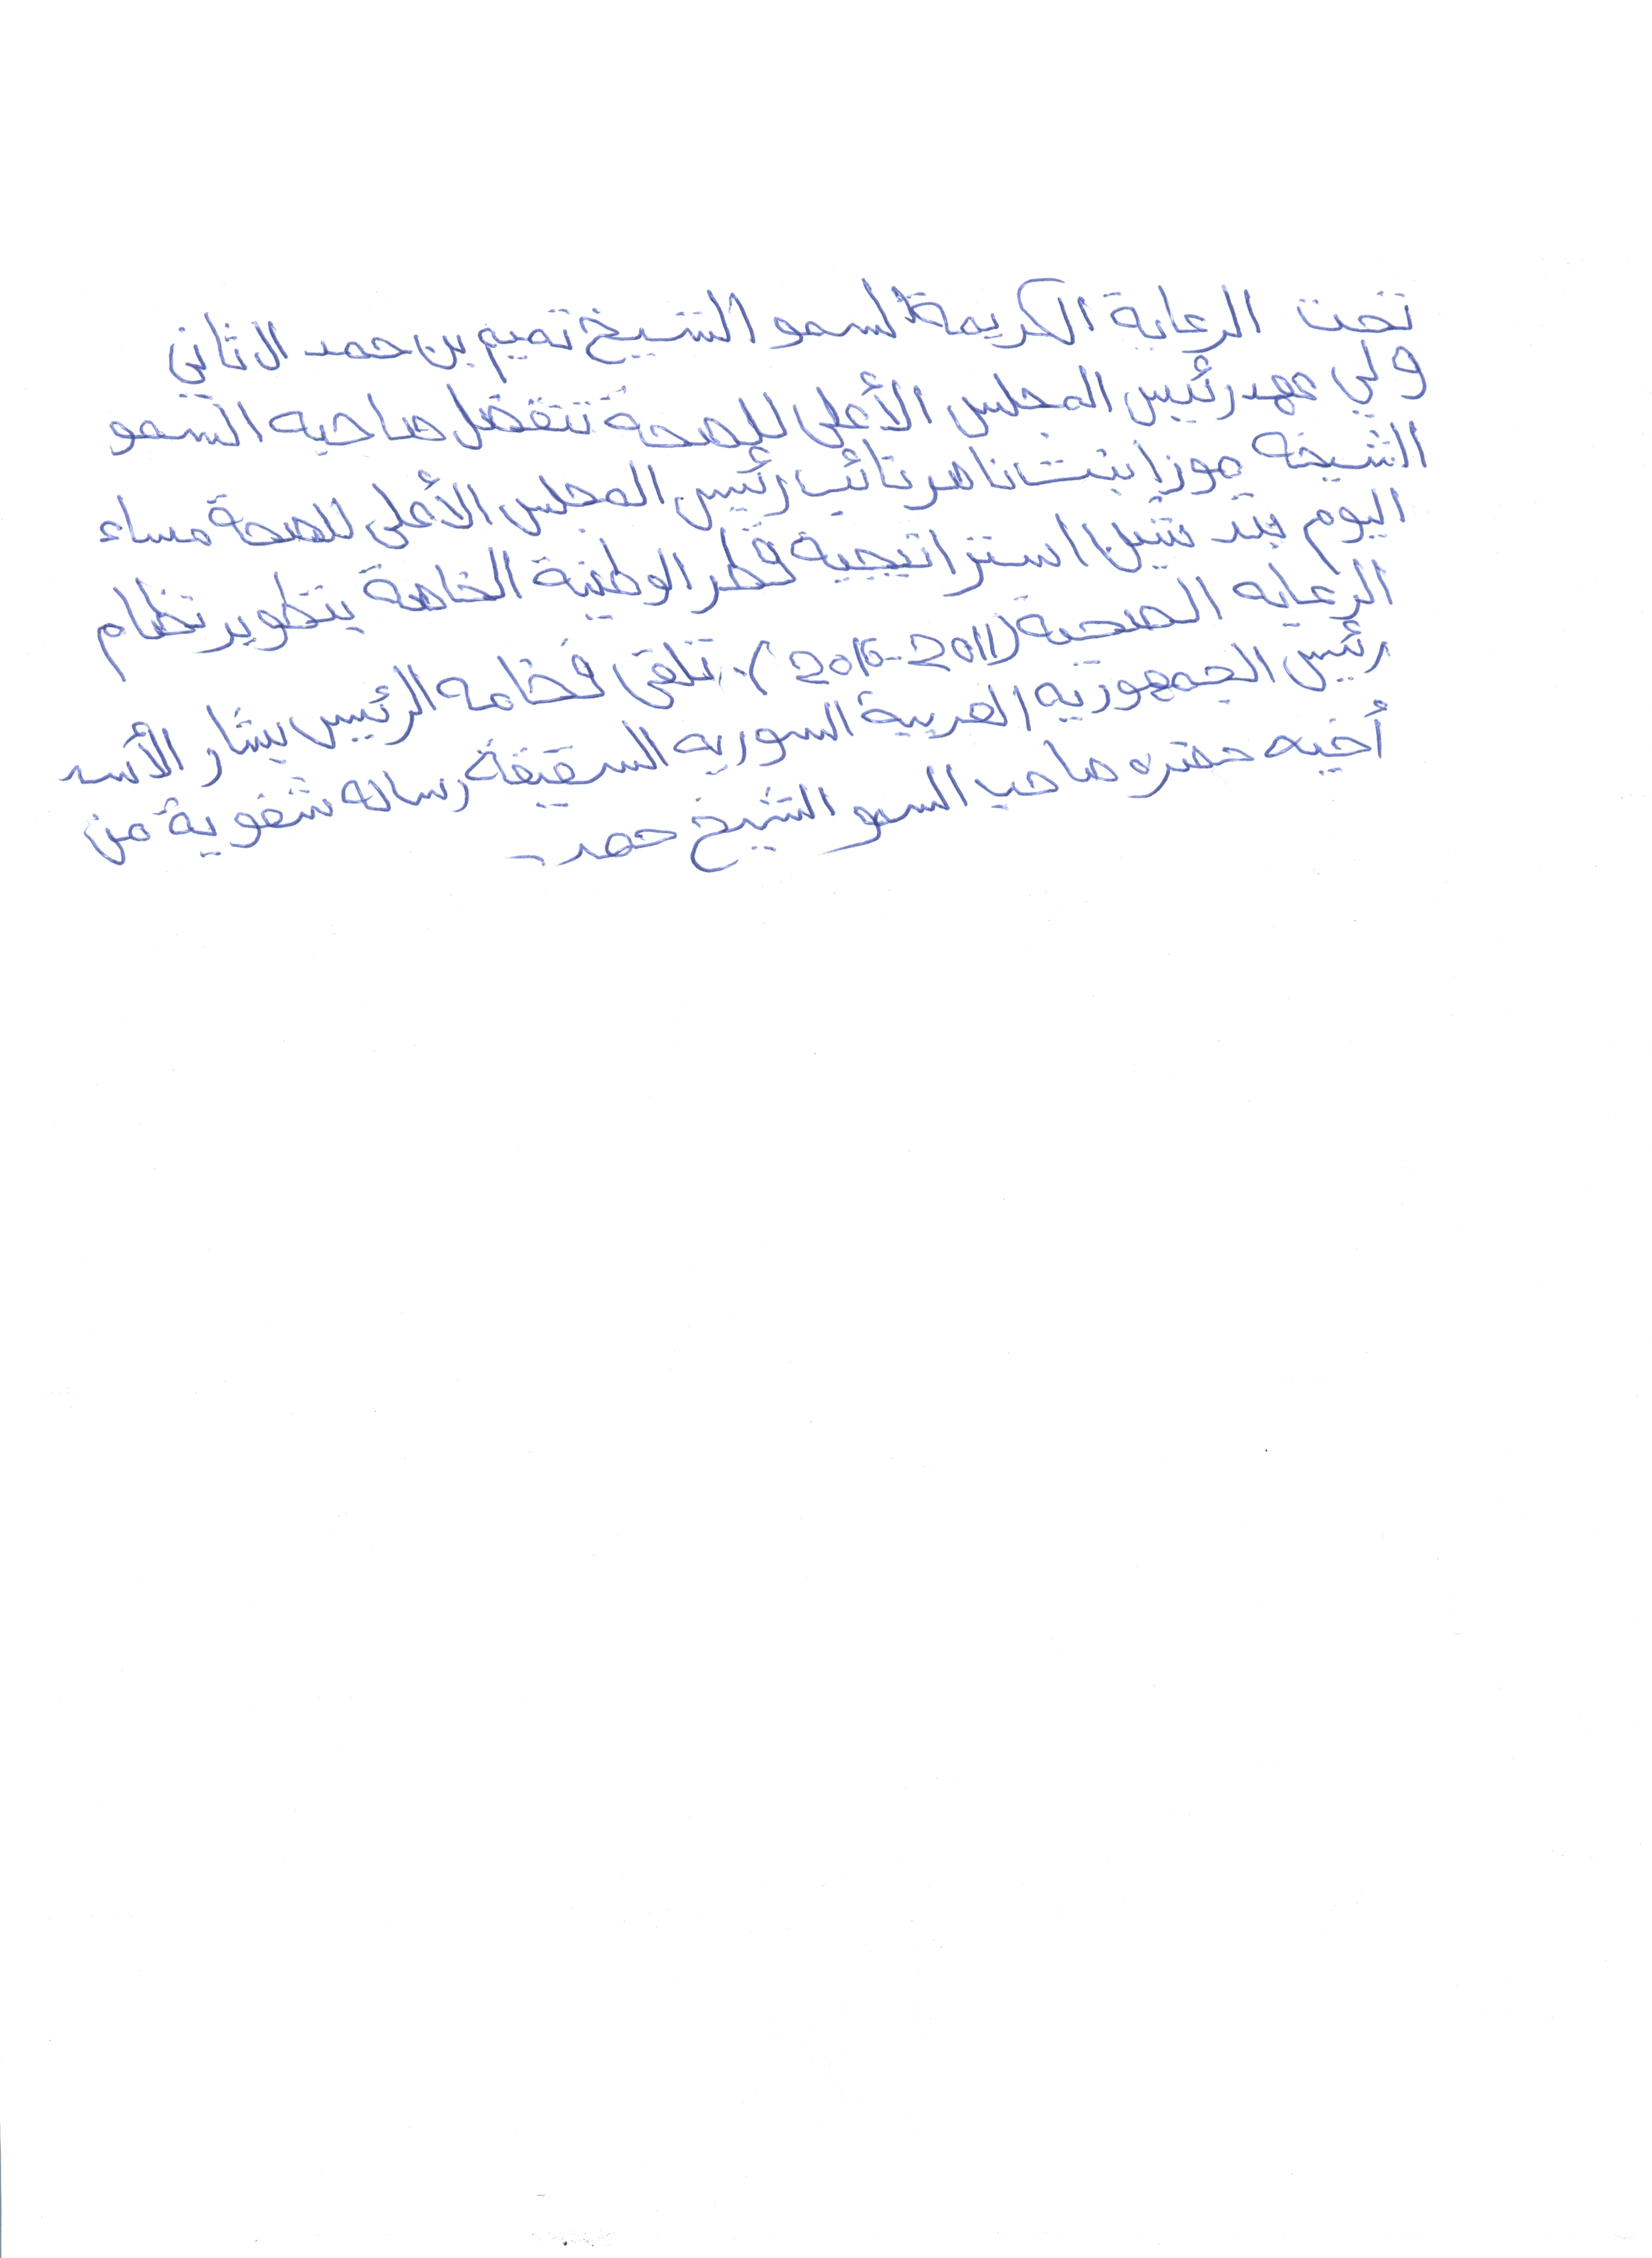 تحت الرعاية الكريمة لسمو الشيخ تميم بن حمد ال ثاني
ولي عهد رئيس المجلس الأعلى للصحة تتفضل صاحبه السمو
الشيخه موزا بنت ناصر نائب رئيس المجلس الأعلى للصحة مساء
اليوم بتدشين استراتيجية قطر الوطنية الخاصة بتطوير نظام
الرعايه الصحية (2011-2016). تلقى فخامه الرئيس بشار الأسد
رئيس الجمهوريه العربية السوريه الشقيقة رساله شفوية من
أخيه حضره صاحب السمو الشيخ حمد